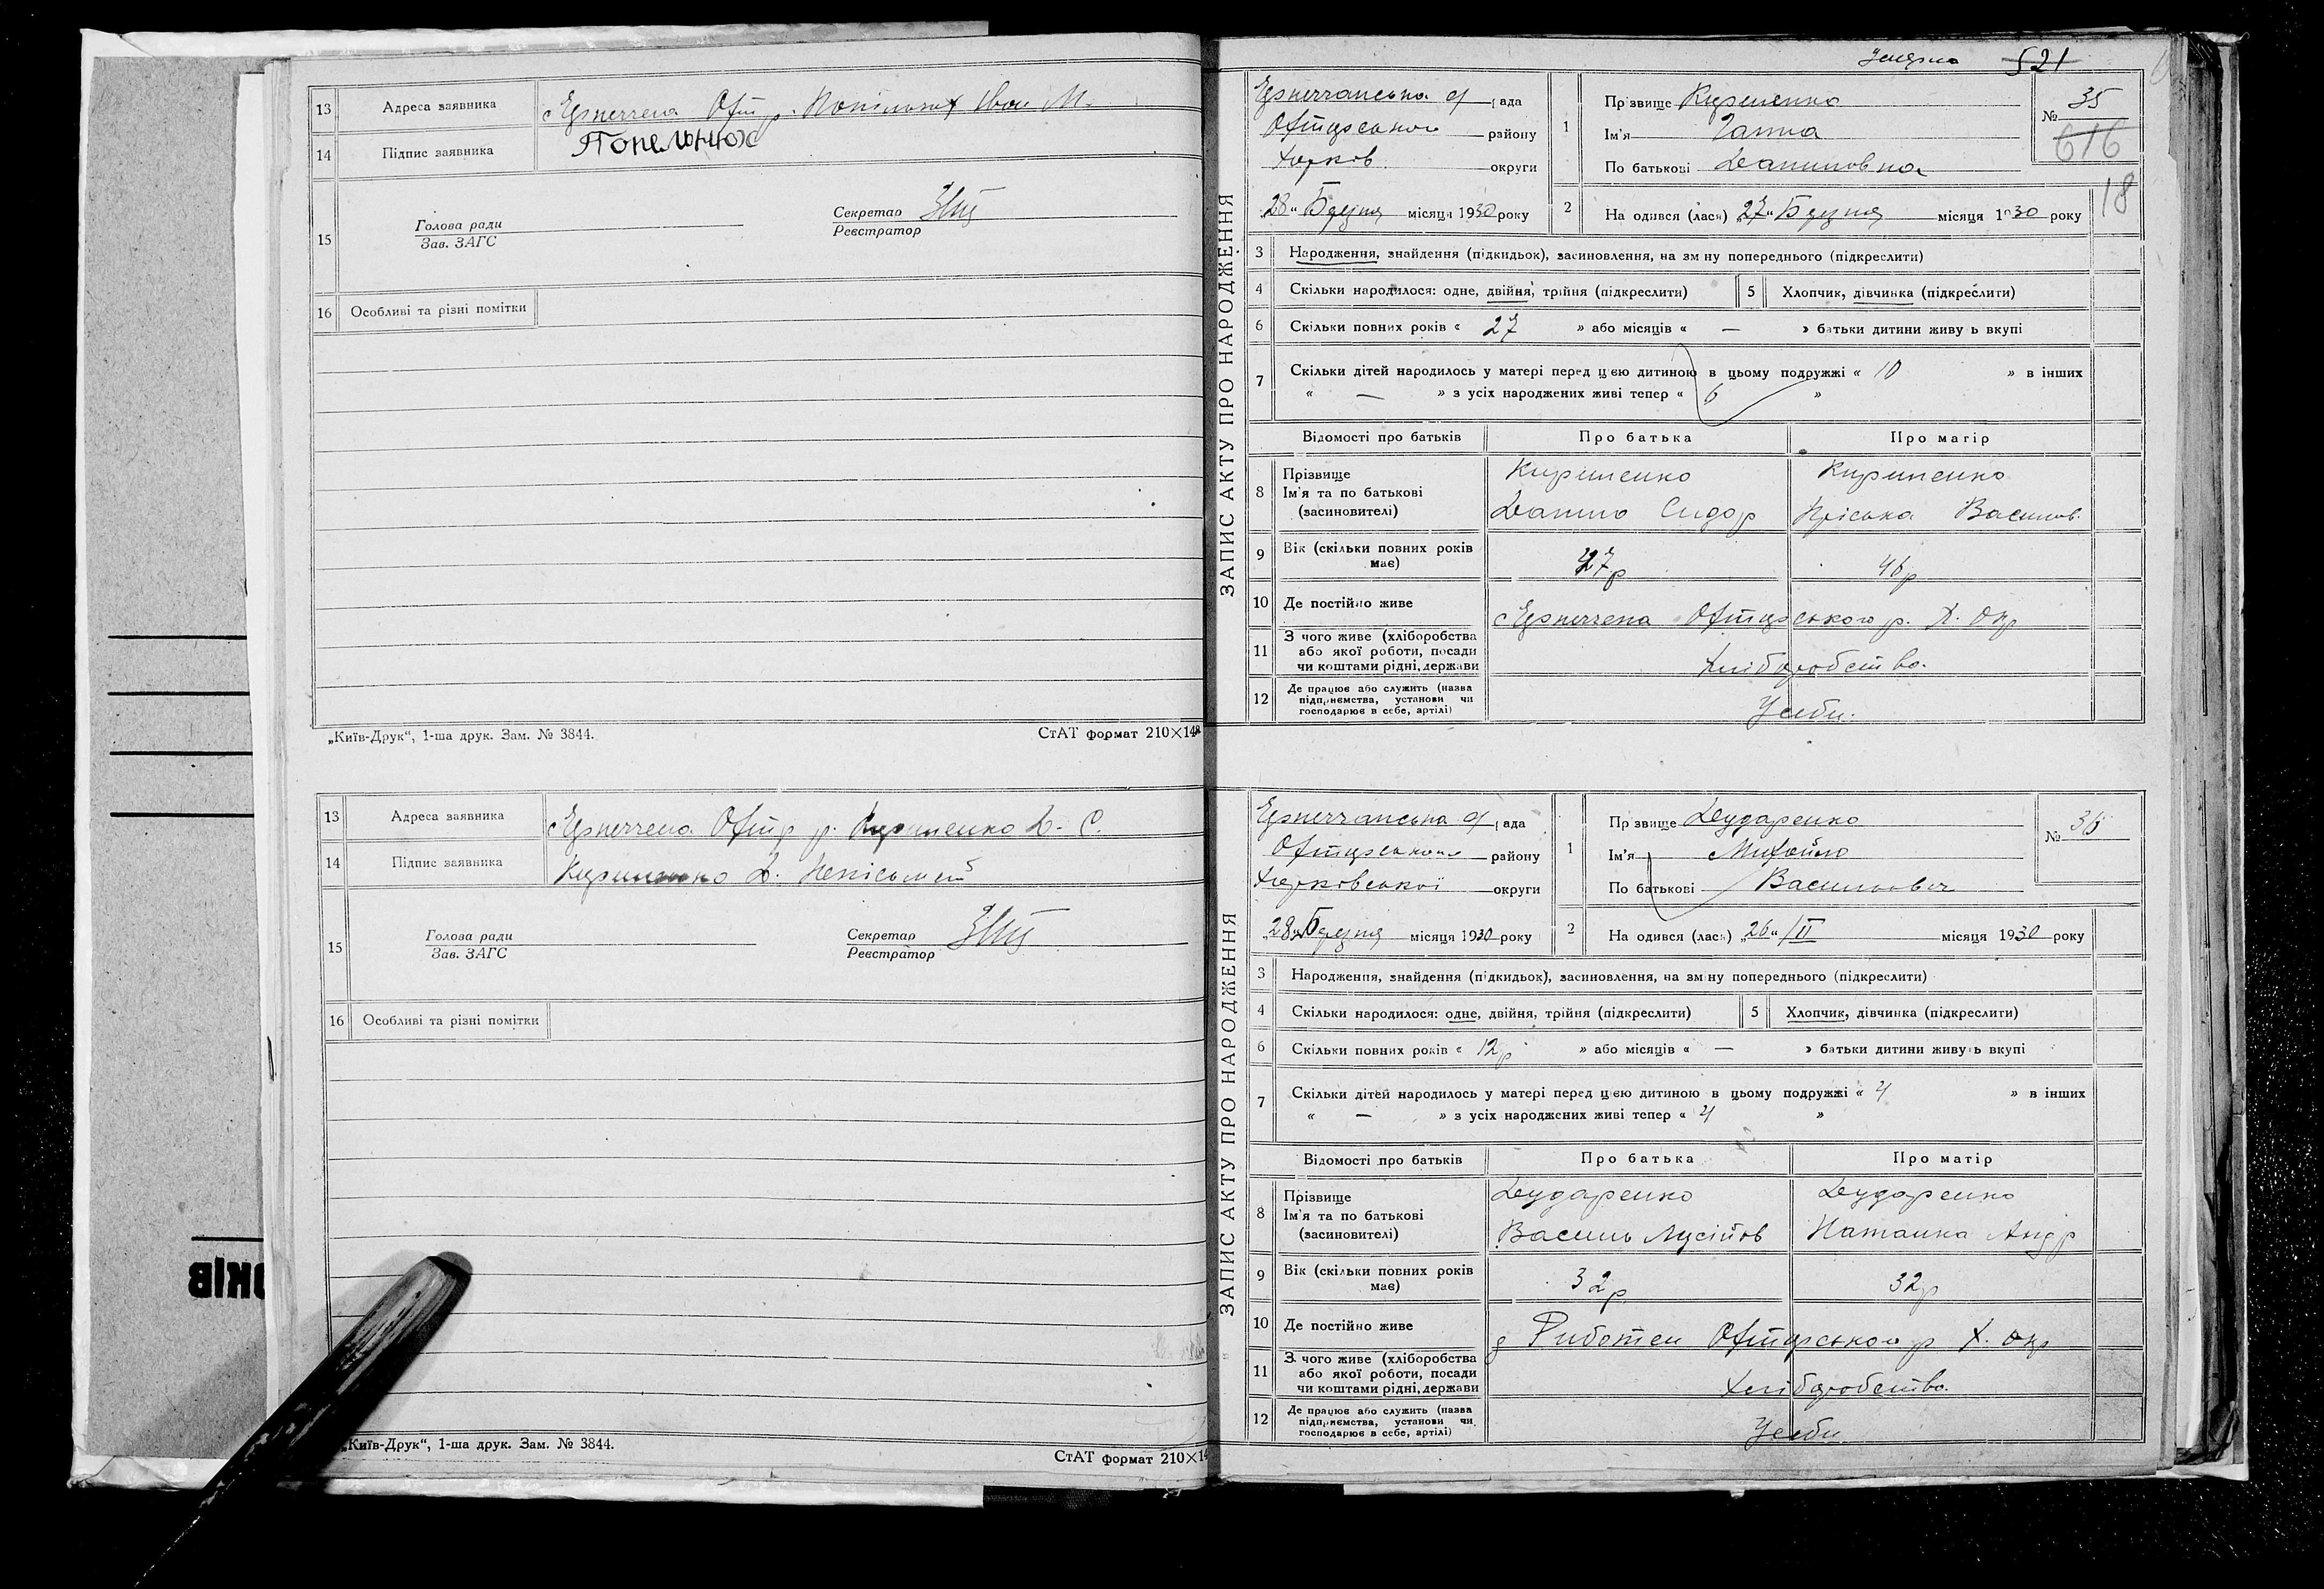 13 Адреса заявника Іван М.
14 Підпис заявника Попельнюх
15 Голова ради
Зав. ЗАГС
Секретар
Реєстратор
16 Особливі та різні помітки
„Київ-Друк“, 1-ша друк. Зам. № 3844.
СтАТ формат 210×148
13 Адреса заявника Кириленко Д. С.
14 Підпис заявника Кириленко Д.
15 Голова ради
Зав. ЗАГС
Секретар
Реєстратор
16 Особливі та різні помітки
„Київ-Друк“, 1-ша друк. Зам. № 3844.
СтАТ формат 210×14
ОКІВ
521
ЗАПИС АКТУ ПРО НАРОДЖЕННЯ
рада
району
Харків округи
„28“ Березня місяця 1930 року
1 Прізвище Кириленко
Ім'я Ганна
По батькові Даниловна
№ 35
616
18
2 Народився (лася) „27“ Березня місяця 1930 року
3 Народження, знайдення (підкидьок), засиновлення, на зміну попереднього (підкреслити)
4 Скільки народилося: одне, двійня, трійня (підкреслити)
5 Хлопчик, дівчинка (підкреслити)
6 Скільки повних років « 27 » або місяців « — » батьки дитини живуть вкупі
7 Скільки дітей народилось у матері перед цією дитиною в цьому подружжі « 10 » в інших
« — » з усіх народжених живі тепер « 6 »
Відомості про батьків Про батька Про матір
8 Прізвище
Ім'я та по батькові
(засновителі)
Кириленко
Данило Сидор
Кириленко
Пріська Василов.
9 Вік (скільки повних років має) 47р 46р
10 Де постійно живе
11 З чого живе (хліборобства
або якої роботи, посади
чи коштами рідні, держави
Хліборобство.
12 Де працює або служить (назва
підприємства, установи чи
господарює в себе, артілі)
У себи.
ЗАПИС АКТУ ПРО НАРОДЖЕННЯ
рада
району
Харківської округи
„28“ Березня місяця 1930 року
1 Прізвище Дударенко
Ім'я Михайло
По батькові Васильович
№ 36
2 Народився (лась) „26“/II місяця 1930 року
3 Народження, знайдення (підкидьок), засиновлення, на зміну попереднього (підкреслити)
4 Скільки народилося: одне, двійня, трійня (підкреслити)
5 Хлопчик, дівчинка (підкреслити)
6 Скільки повних років « 12р » або місяців « — » батьки дитини живуть вкупі
7 Скільки дітей народилось у матері перед цією дитиною в цьому подружжі « 4 » в інших
« — » з усіх народжених живі тепер « 4 »
Відомості про батьків Про батька Про матір
8 Прізвище
Ім'я та по батькові
(засиновителі)
Дударенко
Василь Мусійов
Дударенко
Наталка Андр
9 Вік (скільки повних років має) 32р 32р
10 Де постійно живе
11 З чого живе (хліборобства
або якої роботи, посади
чи коштами рідні, держави
Хліборобство.
12 Де працює або служить (назва
підприємства, установи чи
господарює в себе, артілі)
У себи